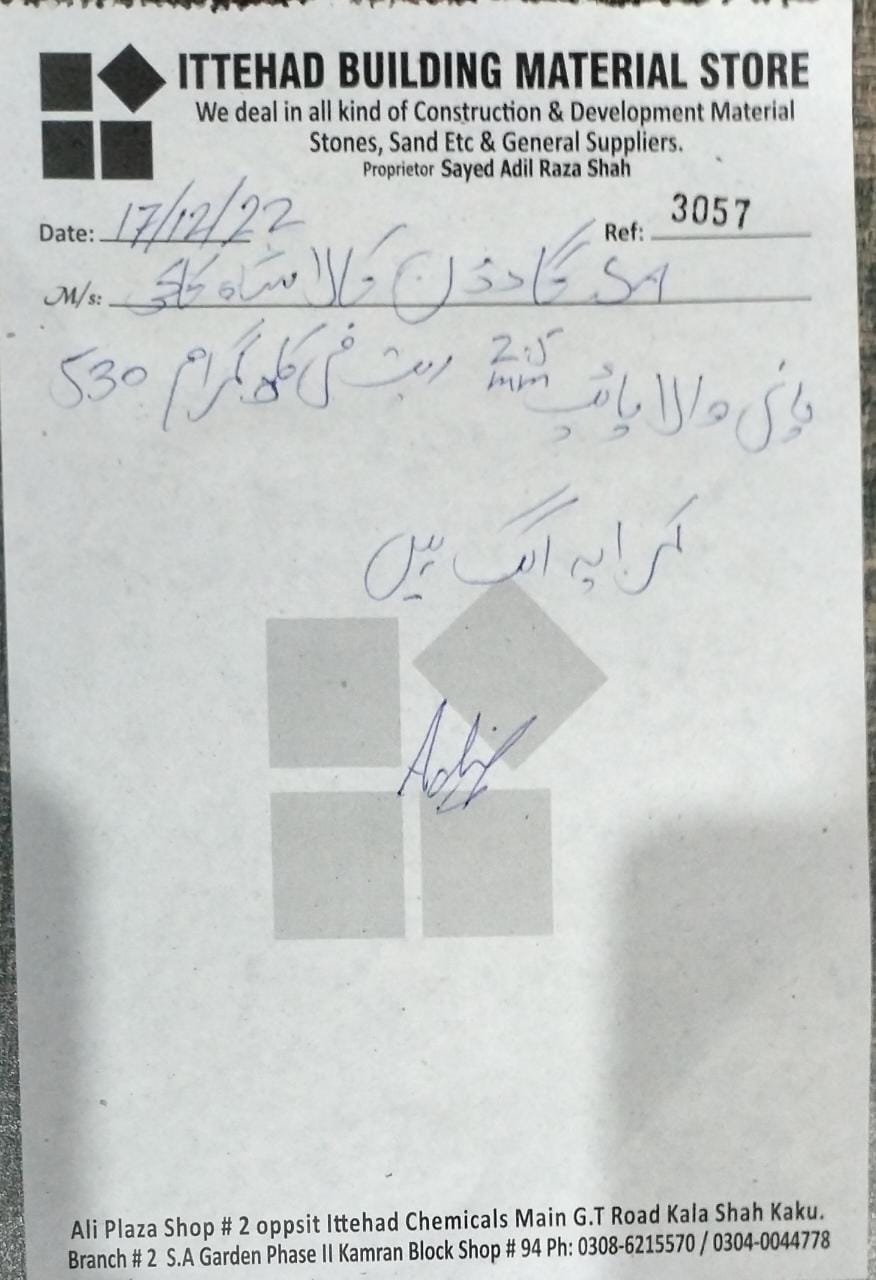 ITTEHAD BUILDING MATERIAL STORE
We deal in all kind of Construction & Development Material
Stones, Sand Etc & General Suppliers.
Proprietor Sayed Adil Raza Shah
Date: 17/12/22 Ref: 3057
M/s: SA گارڈن کالا شاہ کاکو
پانی والا پائپ 2.5 mm ریٹ فی کلو گرام 530
کرایہ الگ ہیں
Adil
Ali Plaza Shop # 2 oppsit Ittehad Chemicals Main G.T Road Kala Shah Kaku.
Branch # 2 S.A Garden Phase II Kamran Block Shop # 94 Ph: 0308-6215570 / 0304-0044778